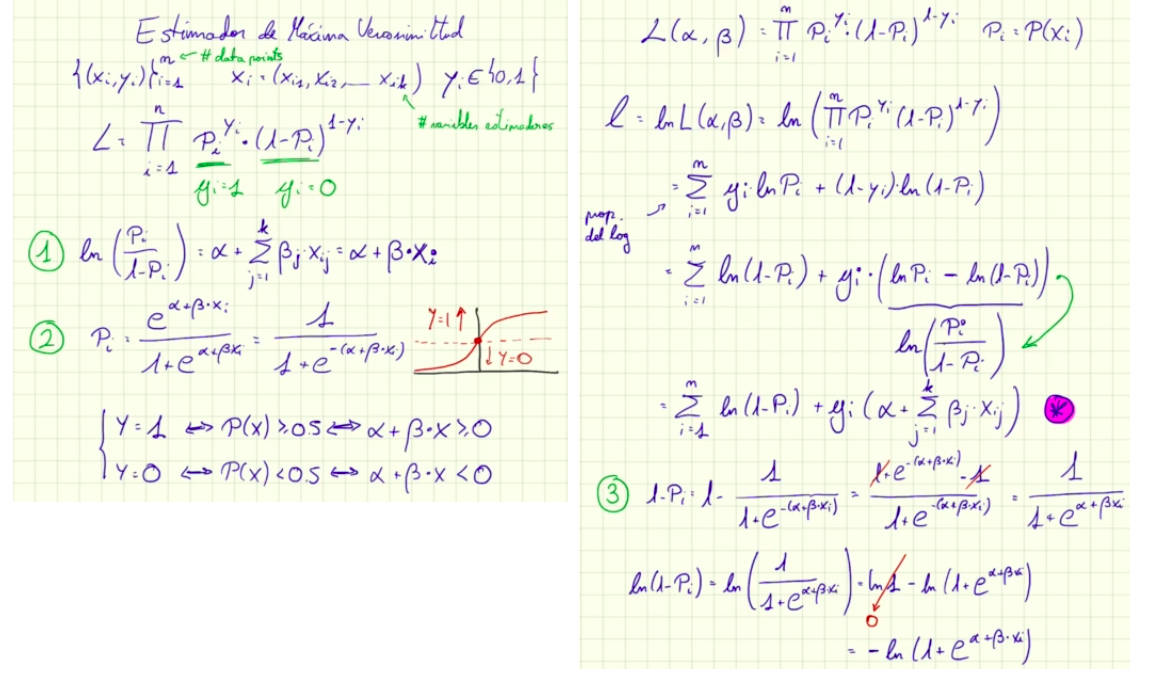 Estimador de Máxima Verosimilitud
{(xi,yi)}ⁿi=1 ← # data points xi = (xi1, xi2, ... xik) yi ∈ {0,1}
# variables estimadoras
L = ∏ⁿi=1 Pi^yi · (1-Pi)^1-yi
yi=1 yi=0
① ln (Pi / 1-Pi) = α + Σᵏj=1 βj xij = α + β·xi
② Pi = e^α+β·xi / 1+e^α+βxi = 1 / 1+e^-(α+β·xi)
Y=1↑
↓Y=0
{ Y=1 ⟺ P(x) ≥ 0.5 ⟺ α + β·x ≥ 0
Y=0 ⟺ P(x) < 0.5 ⟺ α + β·x < 0
L(α, β) = ∏ⁿi=1 Pi^yi · (1-Pi)^1-yi Pi = P(xi)
l = ln L(α, β) = ln (∏ⁿi=1 Pi^yi (1-Pi)^1-yi)
= Σⁿi=1 yi·ln Pi + (1-yi)·ln (1-Pi)
prop.
del log
= Σⁿi=1 ln (1-Pi) + yi·(ln Pi - ln (1-Pi))
ln (Pi / 1-Pi)
= Σⁿi=1 ln (1-Pi) + yi (α + Σᵏj=1 βj·xij) *
③ 1-Pi = 1 - 1 / 1+e^-(α+β·xi) = 1+e^-(α+β·xi) - 1 / 1+e^-(α+β·xi) = 1 / 1+e^α+βxi
ln (1-Pi) = ln (1 / 1+e^α+βxi) = ln 1 - ln (1+e^α+βxi)
0
= - ln (1+e^α+β·xi)